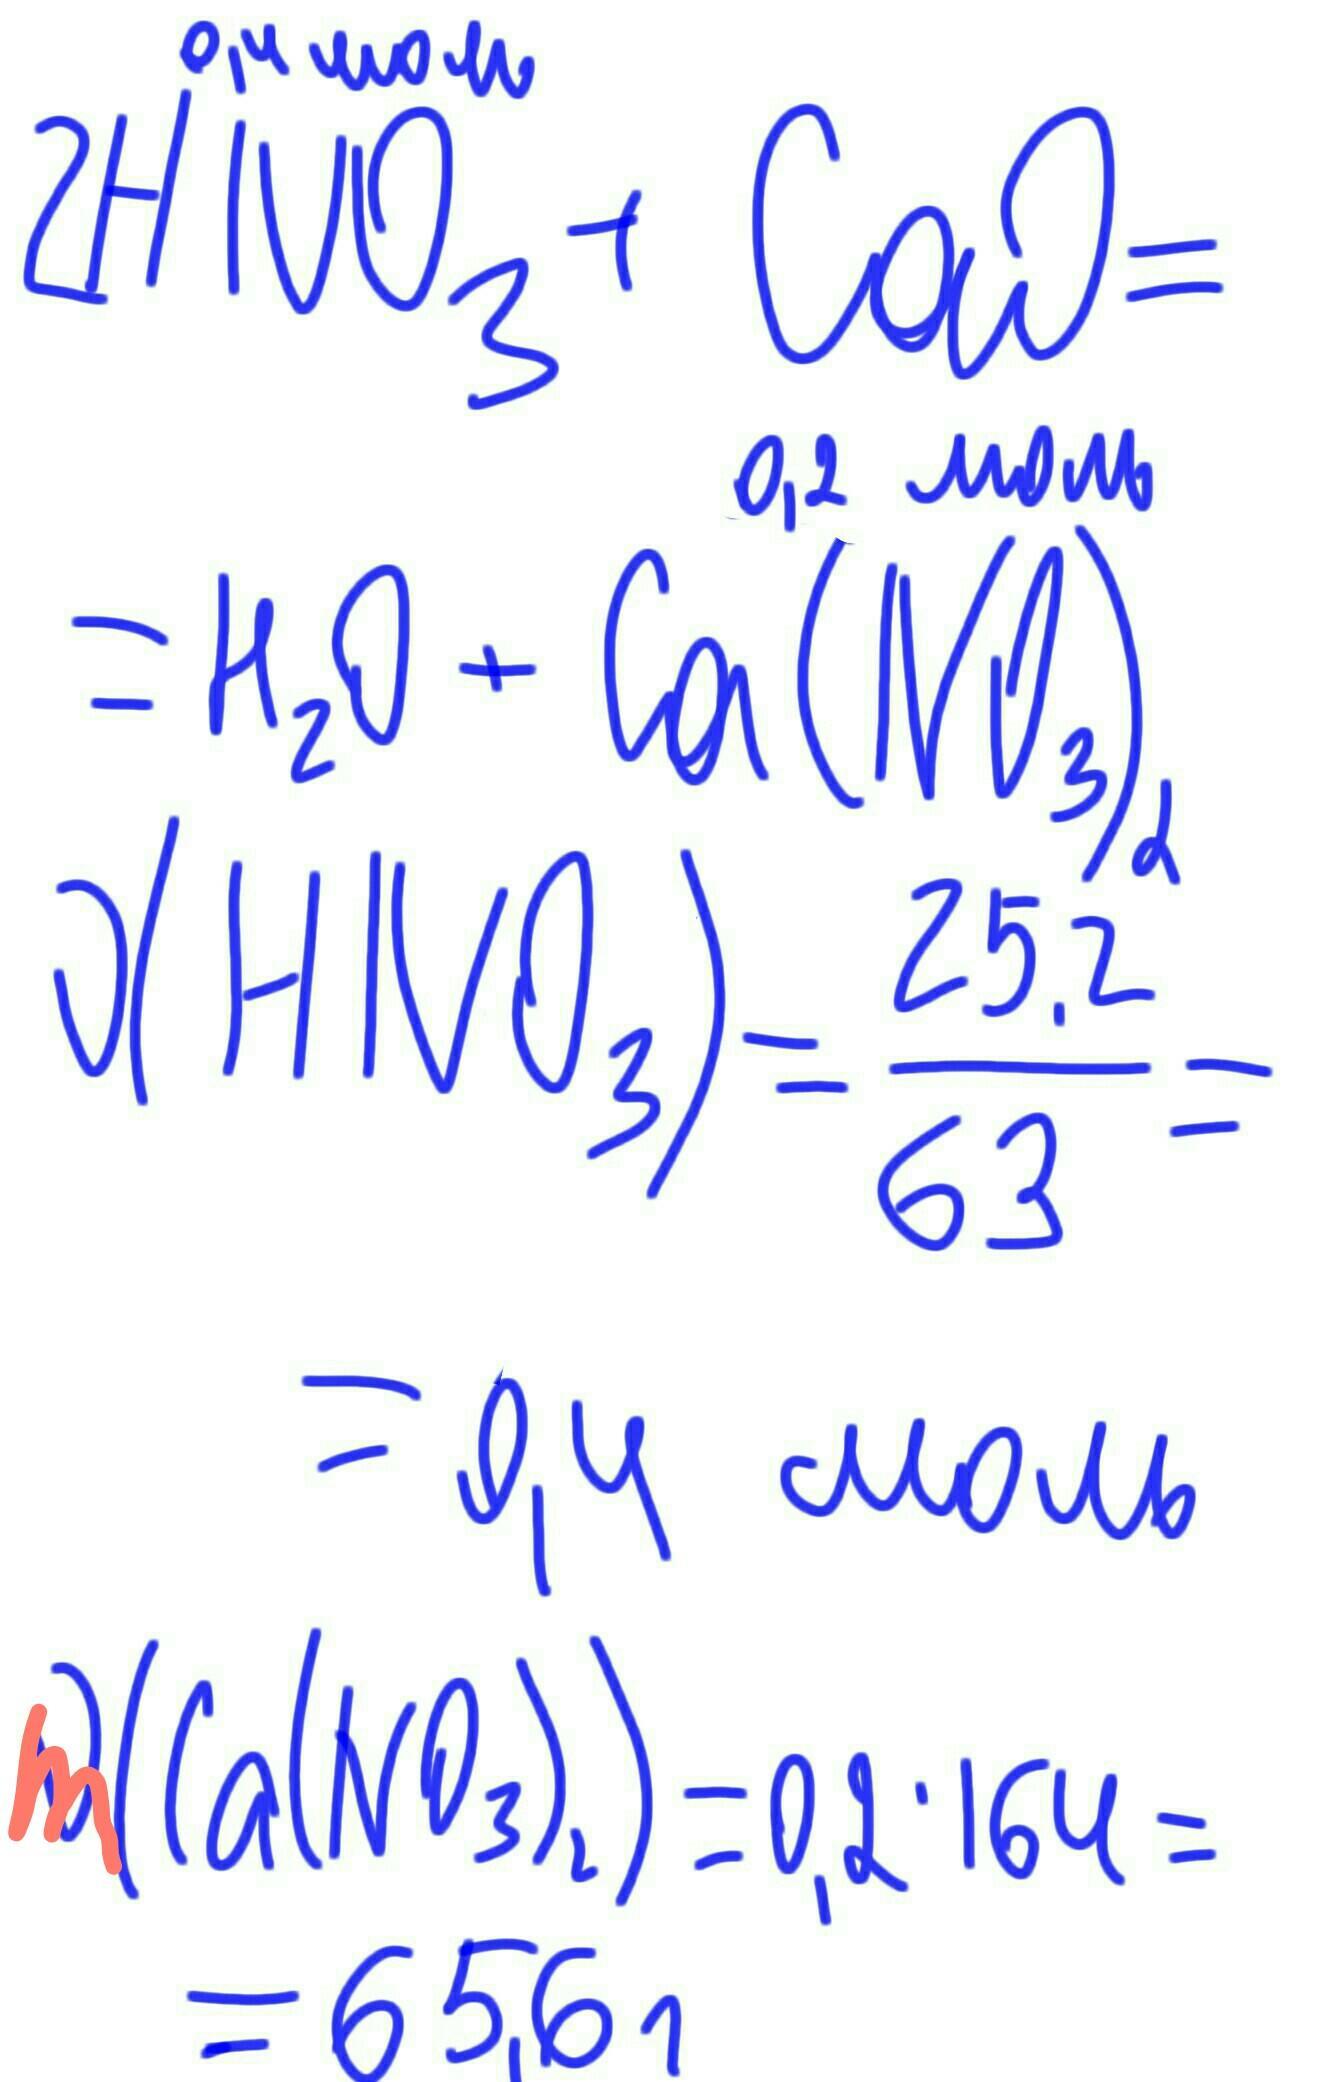 0,4 моль
2HNO3 + CaO =
0,2 моль
= H2O + Ca(NO3)2
ν(HNO3) = 25.2/63 =
= 0,4 моль
m(Ca(NO3)2) = 0,2 · 164 =
= 65,6 г